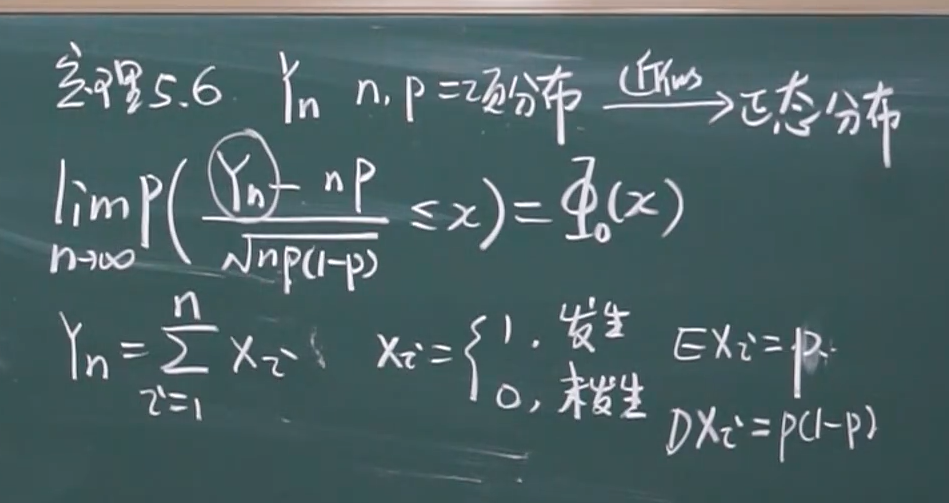 定理5.6 Yn n, p 二项分布 近似 → 正态分布
lim n→∞ P( (Yn - np) / √np(1-p) ≤ x ) = Φ₀(x)
Yn = Σ i=1 n Xi Xi = { 1, 发生 EXi = p
0, 未发生 DXi = p(1-p)